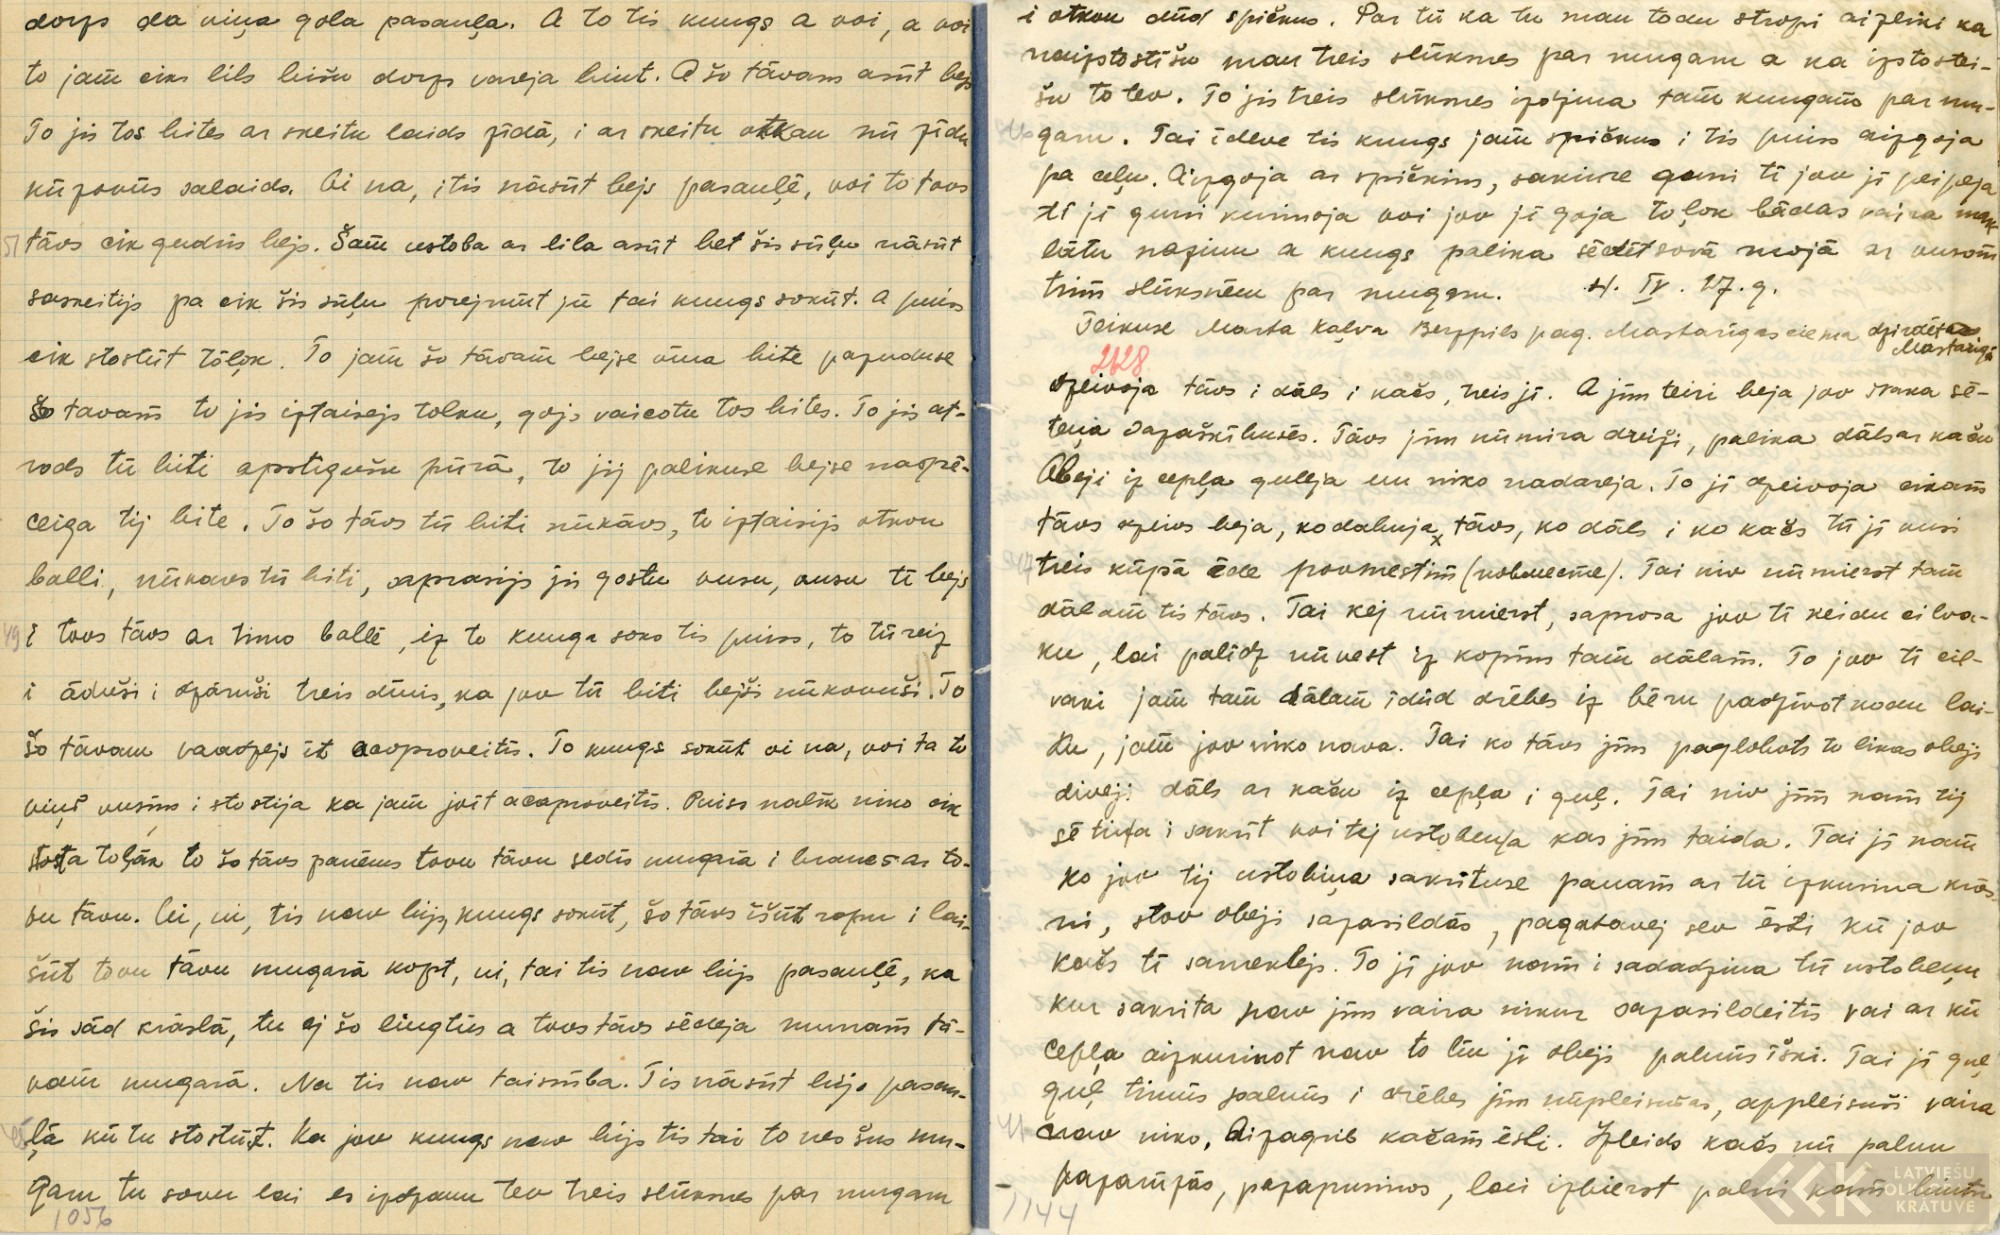 dorzs da viņa gola pasauļa. A to tis kungs a voi, a voi
to jam̄ eiks lils bišu dorzs vareja biut. A šo tāvam asūt bejs
To jis tos bites ar skeitu laids zīdā, i ar skeitu otkan nū zīdu
kūzovūs salaids. Oi na, i tis nāsūt bejs pasauļē, voi to tovs
51 tāvs eik gudris bejs. Šam̄ ustoba ar lila asūt bet šis sūļu nāsūt
saskeitijs pa cik šis sūļu porejmūt jū tai kungs sokūt. A puiss
eik stostūt tōļok. To jam̄ šo tāvam̄ bejse vīna bite pazuduse
šo tavam̄ to jis iztaisejs tolku, gojs vaicotu tos bites. To jis at-
rods tū biti apstīgušu pūrā, to jej palikuse bejse naspē-
ceiga tij bite. To šo tāvs tū biti nūkāvs, to iztaisijs otkon
balli, nūkovs tū biti, saprasijs jis gostu vusu, vusu tī bejs
49 i tovs tāvs ar timā ballē, iz to kunga soka tis puiss, to tūreiz
i āduši i dzāruši treis dīnis, ka jov tū biti bejši nūkovuši. To
šo tāvam vaadzejs īt acaproveitūs. To kungs sokūt oi na, voi ta to
viņš vusim i stostija ka jam̄ joīt acaproveitūs. Puiss nalīk niko eik
stosta toļāk to šo tāvs panēms tovu tāvu sedīs mugarā i braucs ar to-
vu tāvu. Oi, ni, tis nav bijs, kungs sokūt, šo tāvs īšūt ropu i lai-
šūt tovu tāvu mugarā kopt, ni, tai tis nav bijs pasauļē, ka
šis sād krāslā, tu ej šo lūgtūs a tovs tāvs sēdeja munam̄ tā-
vam̄ mugarā. Na tis nav taisnība. Tis nāsūt bijs pasau-
ļā kū tu stostūt. Ka jov kungs nav bijs tis tai to nes šur mu-
garu tu sovu lai es izdzanu tev treis slūksnes par mugaru
1056
i otkon dūd spičkus. Par tū ka tu man todu stropi aizliki ka
naizstostīšu man treis slūksnes par mugaru a ka izstostei-
šu to tev. To jis treis slūksnes izdzina tam̄ kungam̄ par mu-
garu. Tai īdeve tis kungs jam̄ spičkus i tis puiss aizgoja
pa ceļu. Aizgoja ar spičkim, sakiure guni tī jov jī peipeja
tī jī guni kurinoja voi jov jī goja toļok bādas vaira mek-
lātu nazinu a kungs palika sēdēt sovā mojā ar vusom̄
trim̄ slūksnēm par mugaru. 21. IV. 27. g.
Teikuse Marta Kaļva Berzpils pag. Mastarīgas ciema dzirdēts
Mastarigā
2628
Dzeivoja tāvs i dāls i kačs, treis jī. A jim teiri beja jov svaka sē-
teņa sazaškībusēs. Tāvs jim nūmira dreiži, palika dāls ar kaču
Abeji iz cepļa guleja un niko nadareja. To jī dzeivoja cikam̄
tāvs dzeivs beja, ko dabuja tāvs, ko dāls i ko kačs tū jī vusi
treis kūpā ēde povmestim̄ (повместе). Tai niv nūmierst tam̄
dālam̄ tis tāvs. Tai kej nūmierst, saprosa jov tī keidu cilva-
ku, lai palīdz nūvest iz kopim tam̄ dālam̄. To jov tī cil-
vaki jam̄ tam̄ dālam̄ īdūd drēbes iz bēru padzīvot kodu lai-
ku, jam̄ jov niko nava. Tai ko tāvs jim paglobots to likas obeji
diveji dāls ar kaču iz cepļa i guļ. Tai niv jim̄ nam̄ tij
sētiņa i sakrūt voi tej ustobeņa kas jim taida. Tai jī nam̄
ko jov tij ustobiņa sakrituse panam̄ ar tū izkurina krās-
ni, stov obeji sazasildās, pagatavej sev ēsti kū jov
kačs tī sameklejs. To jī jov nam̄ i sadadzina tū ustobeņu
kur sakrita nav jim vaira nikur sazasildeitīs vai ar kū
cepļa aizkurinot nav to līn jī obeji palnūs īškā. Tai jī guļ
guļ timūs palnūs i drēbes jim nūpleisušas, appleisuši vaira
nav niko. Aizagrib kačam̄ ēsti. Izleids kačs nū palnu
pazam̄zās, pazapurinos, lai izbierst palni kam būtu
1144
LATVIEŠU
FOLKLORAS
KRĀTUVE